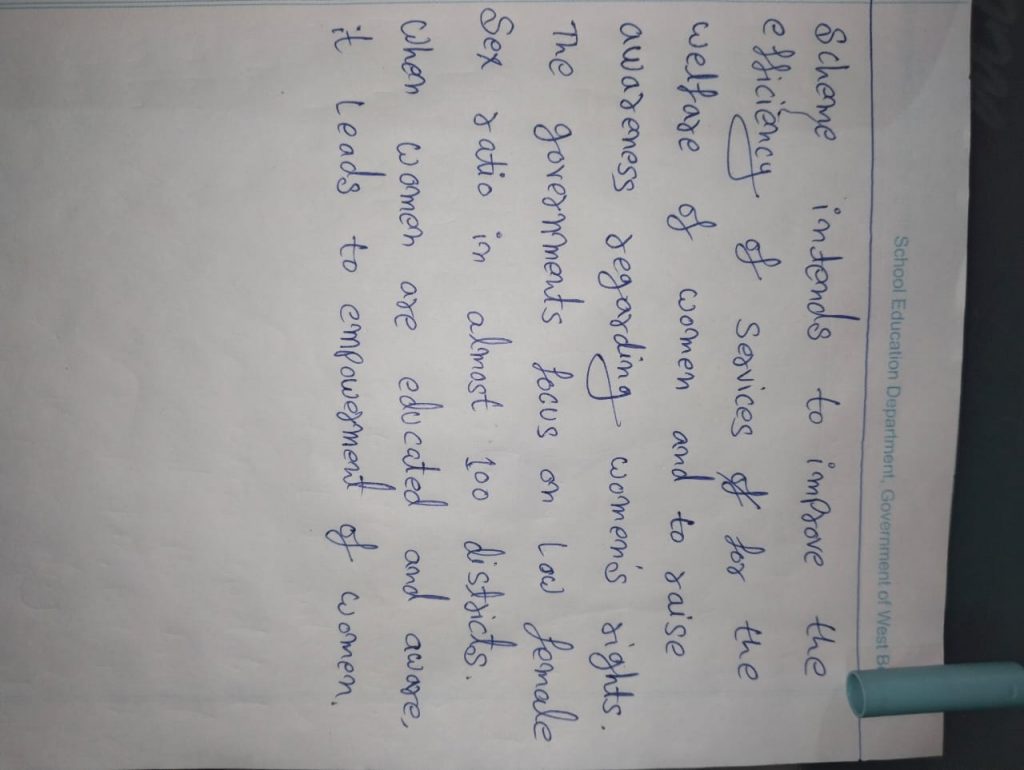 School Education Department, Government of West B
Scheme intends to improve the
efficiency of services of for the
welfare of women and to raise
awareness regarding women's rights.
The governments focus on low female
Sex ratio in almost 100 districts.
When women are educated and aware,
it leads to empowerment of women.